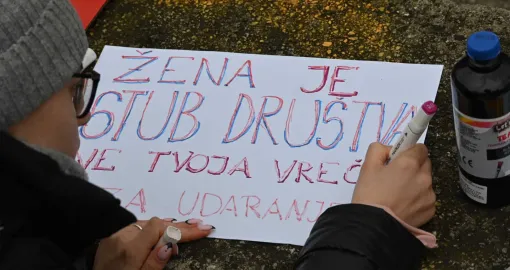 ŽENA JE
STUB DRUŠTVA
NE TVOJA VREĆ
ZA UDARANJE